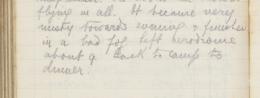 flying in all. It became very
misty towards evening & finished
in a bad fog left aerodrome
about 9 back to camp to
dinner.